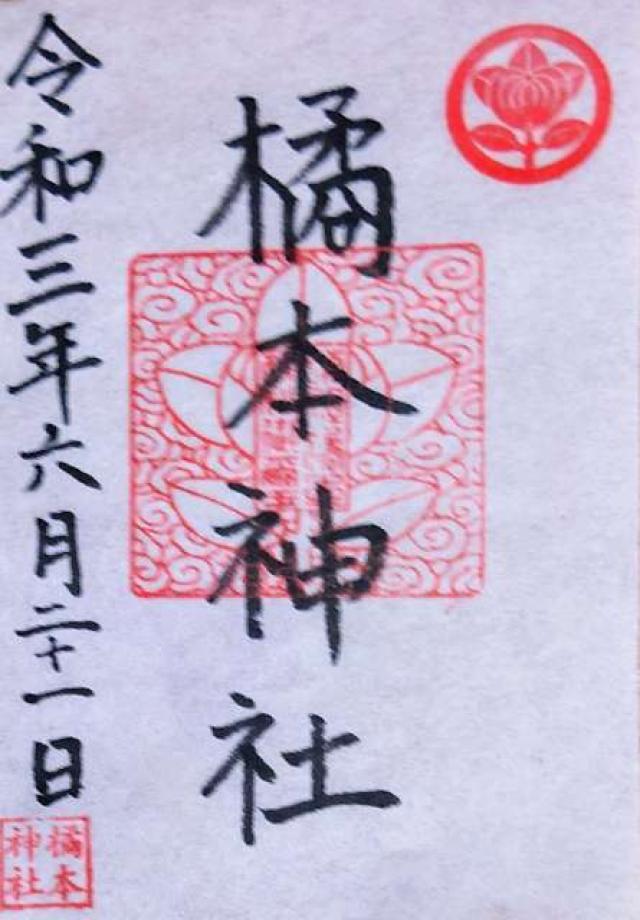 橘本神社
令和三年六月二十一日
橘本
神社